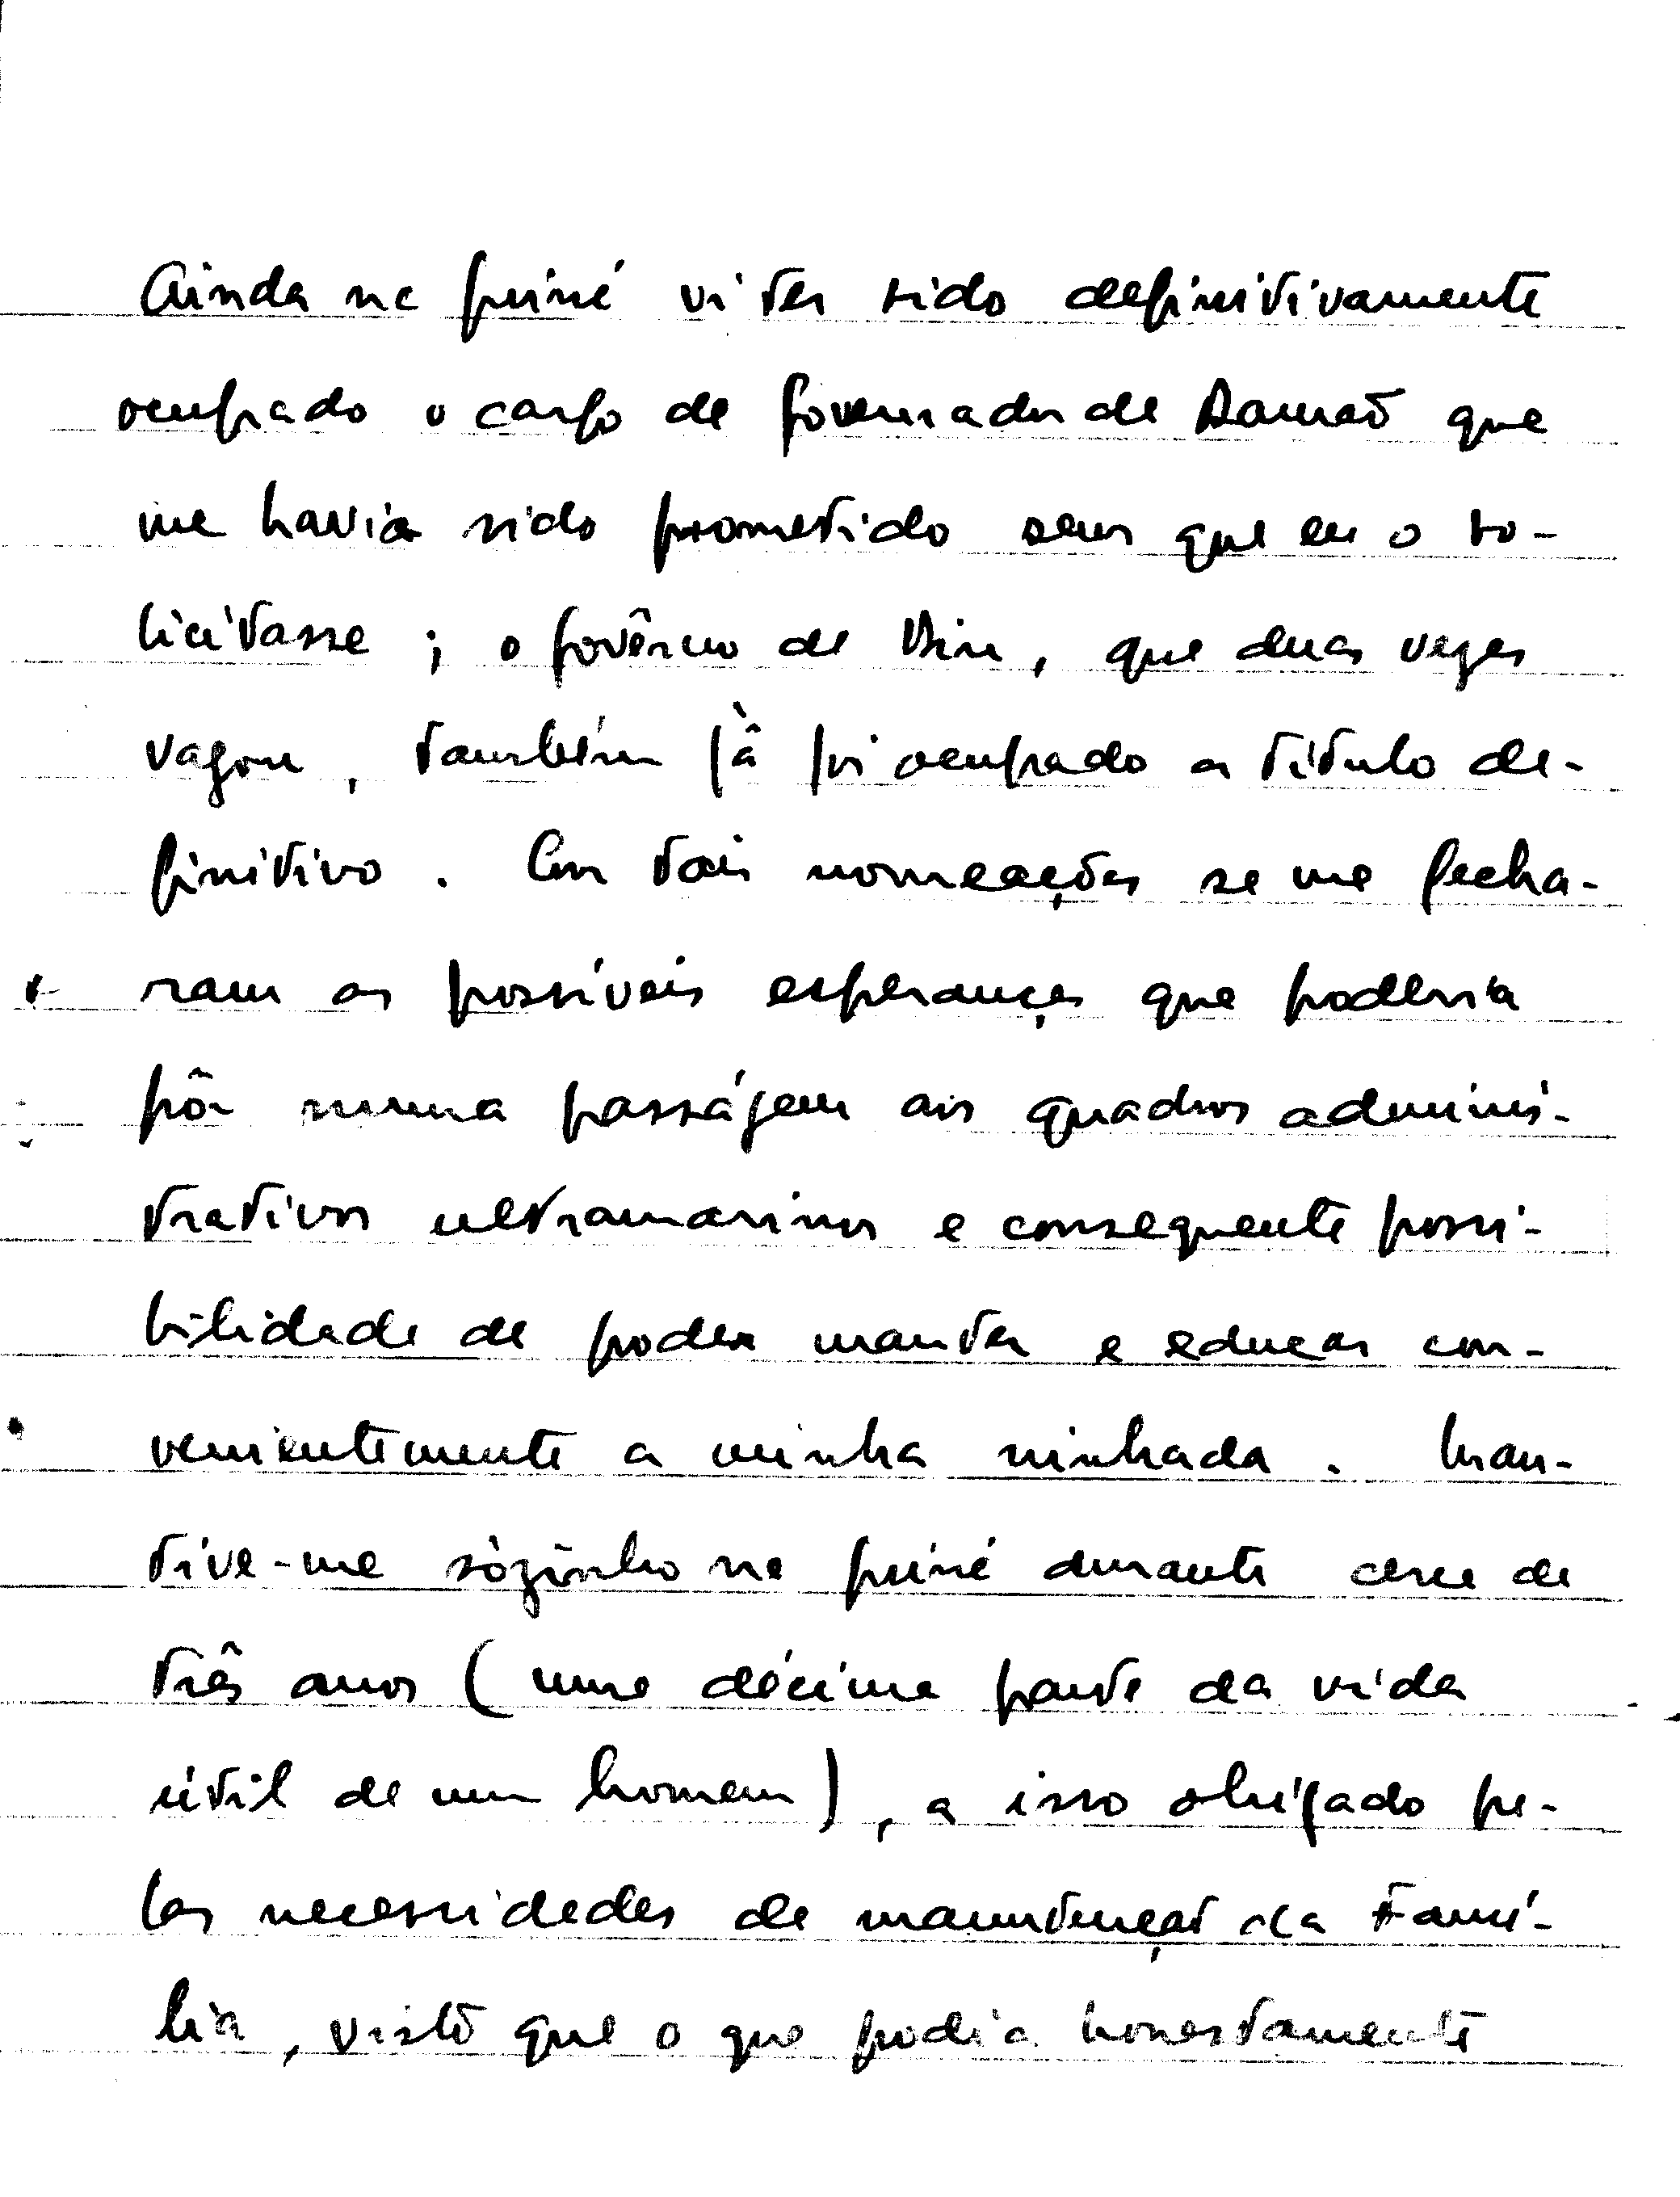 Ainda na guiné vi ter sido definitivamente
ocupado o cargo de governador de Damão que
me havia sido prometido sem que eu o so-
licitasse ; o govêrno de Diu, que duas vezes
vagou, também já foi ocupado a título de-
finitivo. Com tais nomeações se me fecha-
ram as possíveis esperanças que poderia
pôr numa passágem aos quadros adminis-
trativos ultramarinos e consequente possi-
bilidade de poder manter e educar con-
venientemente a minha ninhada. Man-
tive-me sòzinho na guiné durante cerca de
três anos (uma décima parte da vida
útil de um homem), a isso obrigado pe-
las necessidades de manutenção da Famí-
lia, visto que o que podia honestamente